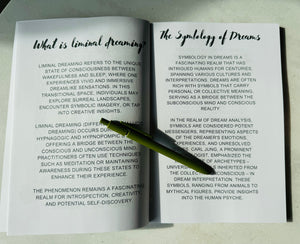 What is liminal dreaming?
LIMINAL DREAMING REFERS TO THE UNIQUE
STATE OF CONSCIOUSNESS BETWEEN
WAKEFULNESS AND SLEEP, WHERE ONE
EXPERIENCES VIVID AND IMMERSIVE
DREAMLIKE SENSATIONS. IN THIS
TRANSITIONAL SPACE, INDIVIDUALS MAY
EXPLORE SURREAL LANDSCAPES,
ENCOUNTER SYMBOLIC IMAGERY, OR TAP
INTO CREATIVE INSIGHTS.
LIMINAL DREAMING (DIFFERENT
DREAMING) OCCURS DURING
HYPNAGOGIC AND HYPNOPOMPIC
OFFERING A BRIDGE BETWEEN
AND UNCONSCIOUS MIND
PRACTITIONERS OFTEN USE TECHNIQUES
SUCH AS MEDITATION OR MAINTAINING
AWARENESS DURING THESE STATES TO
ENHANCE THEIR EXPERIENCE.
THE PHENOMENON REMAINS A FASCINATING
REALM FOR INTROSPECTION, CREATIVITY,
AND POTENTIAL SELF-DISCOVERY.
The Symbology of Dreams
SYMBOLOGY IN DREAMS IS A
FASCINATING REALM THAT HAS
INTRIGUED HUMANS FOR CENTURIES,
SPANNING VARIOUS CULTURES AND
INTERPRETATIONS. DREAMS ARE OFTEN
RICH WITH SYMBOLS THAT CARRY
PERSONAL OR COLLECTIVE MEANING,
SERVING AS A BRIDGE BETWEEN THE
SUBCONSCIOUS MIND AND CONSCIOUS
REALITY.
IN THE REALM OF DREAM ANALYSIS,
SYMBOLS ARE CONSIDERED POTENT
MESSENGERS, REPRESENTING ASPECTS
OF THE DREAMER'S EMOTIONS,
EXPERIENCES, AND UNRESOLVED
CARL JUNG, A PROMINENT
EMPHASIZED THE
OF ARCHETYPES -
INHERITED FROM
THE COLLECTIVE UNCONSCIOUS - IN
DREAM INTERPRETATION. THESE
SYMBOLS, RANGING FROM ANIMALS TO
MYTHICAL FIGURES, PROVIDE INSIGHTS
INTO THE HUMAN PSYCHE.